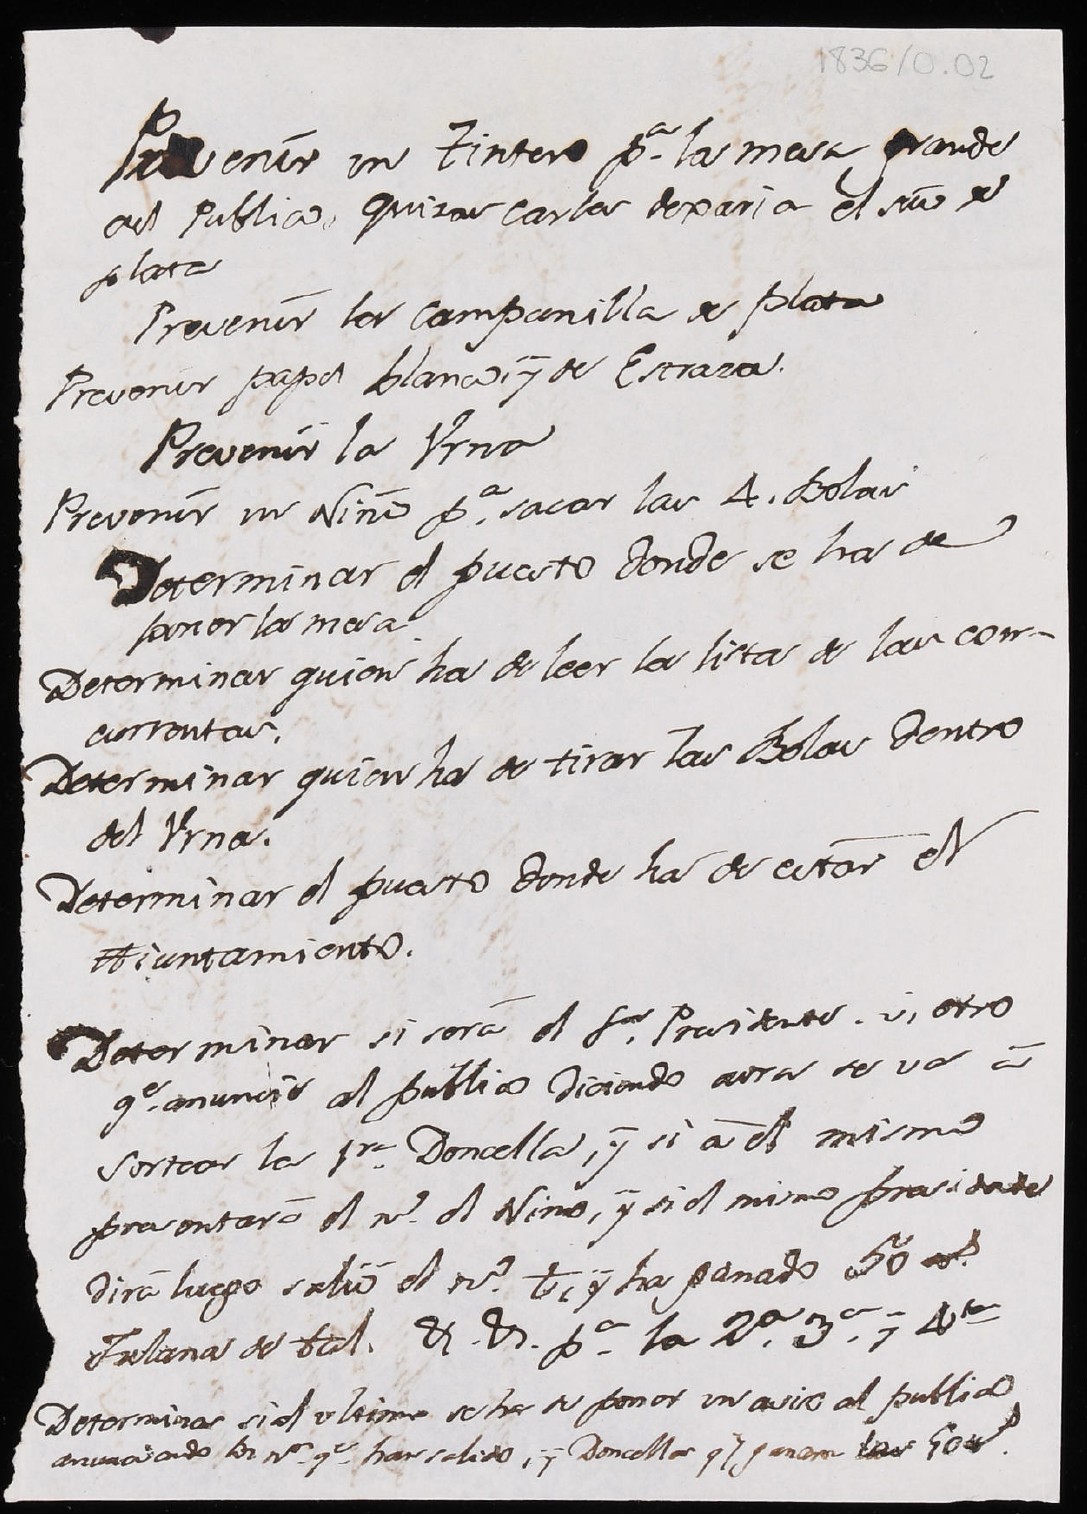 1836/0.02
Prevenir un Tintero pª. la mesa grande
del Publico, quizas Carlos dexaria el suio de
plata
Prevenir la Campanilla de plata
Prevenir papel blanco, ÿ de Estraza.
Prevenir la Vrna
Prevenir un Niño pª. sacar las 4. Bolas
Determinar el puesto donde se ha de
poner la mesa.
Determinar quien ha de leer la lista de las con-
currentas.
Determinar quien ha de tirar las Bolas Dentro
del Vrna.
Determinar el puesto donde ha de estar el
Aiuntamiento.
Determinar si será el Sor. Presidente. ú, otro
qe. anuncie al publico diciendo aora se va á
sortear la 1ra. Doncella, ÿ si á el mismo
presentará el no. el Niño, ÿ si el mismo presidente
dirá luego salió el no. t, ÿ ha ganado 50
Fulana de tal. &. &. pª. la 2ª. 3ª. ÿ 4ta
Determinar si al ultimo se ha de poner un aviso al publico
anunciando los nos. qe. han salido, ÿ Doncellas qe. ganan las